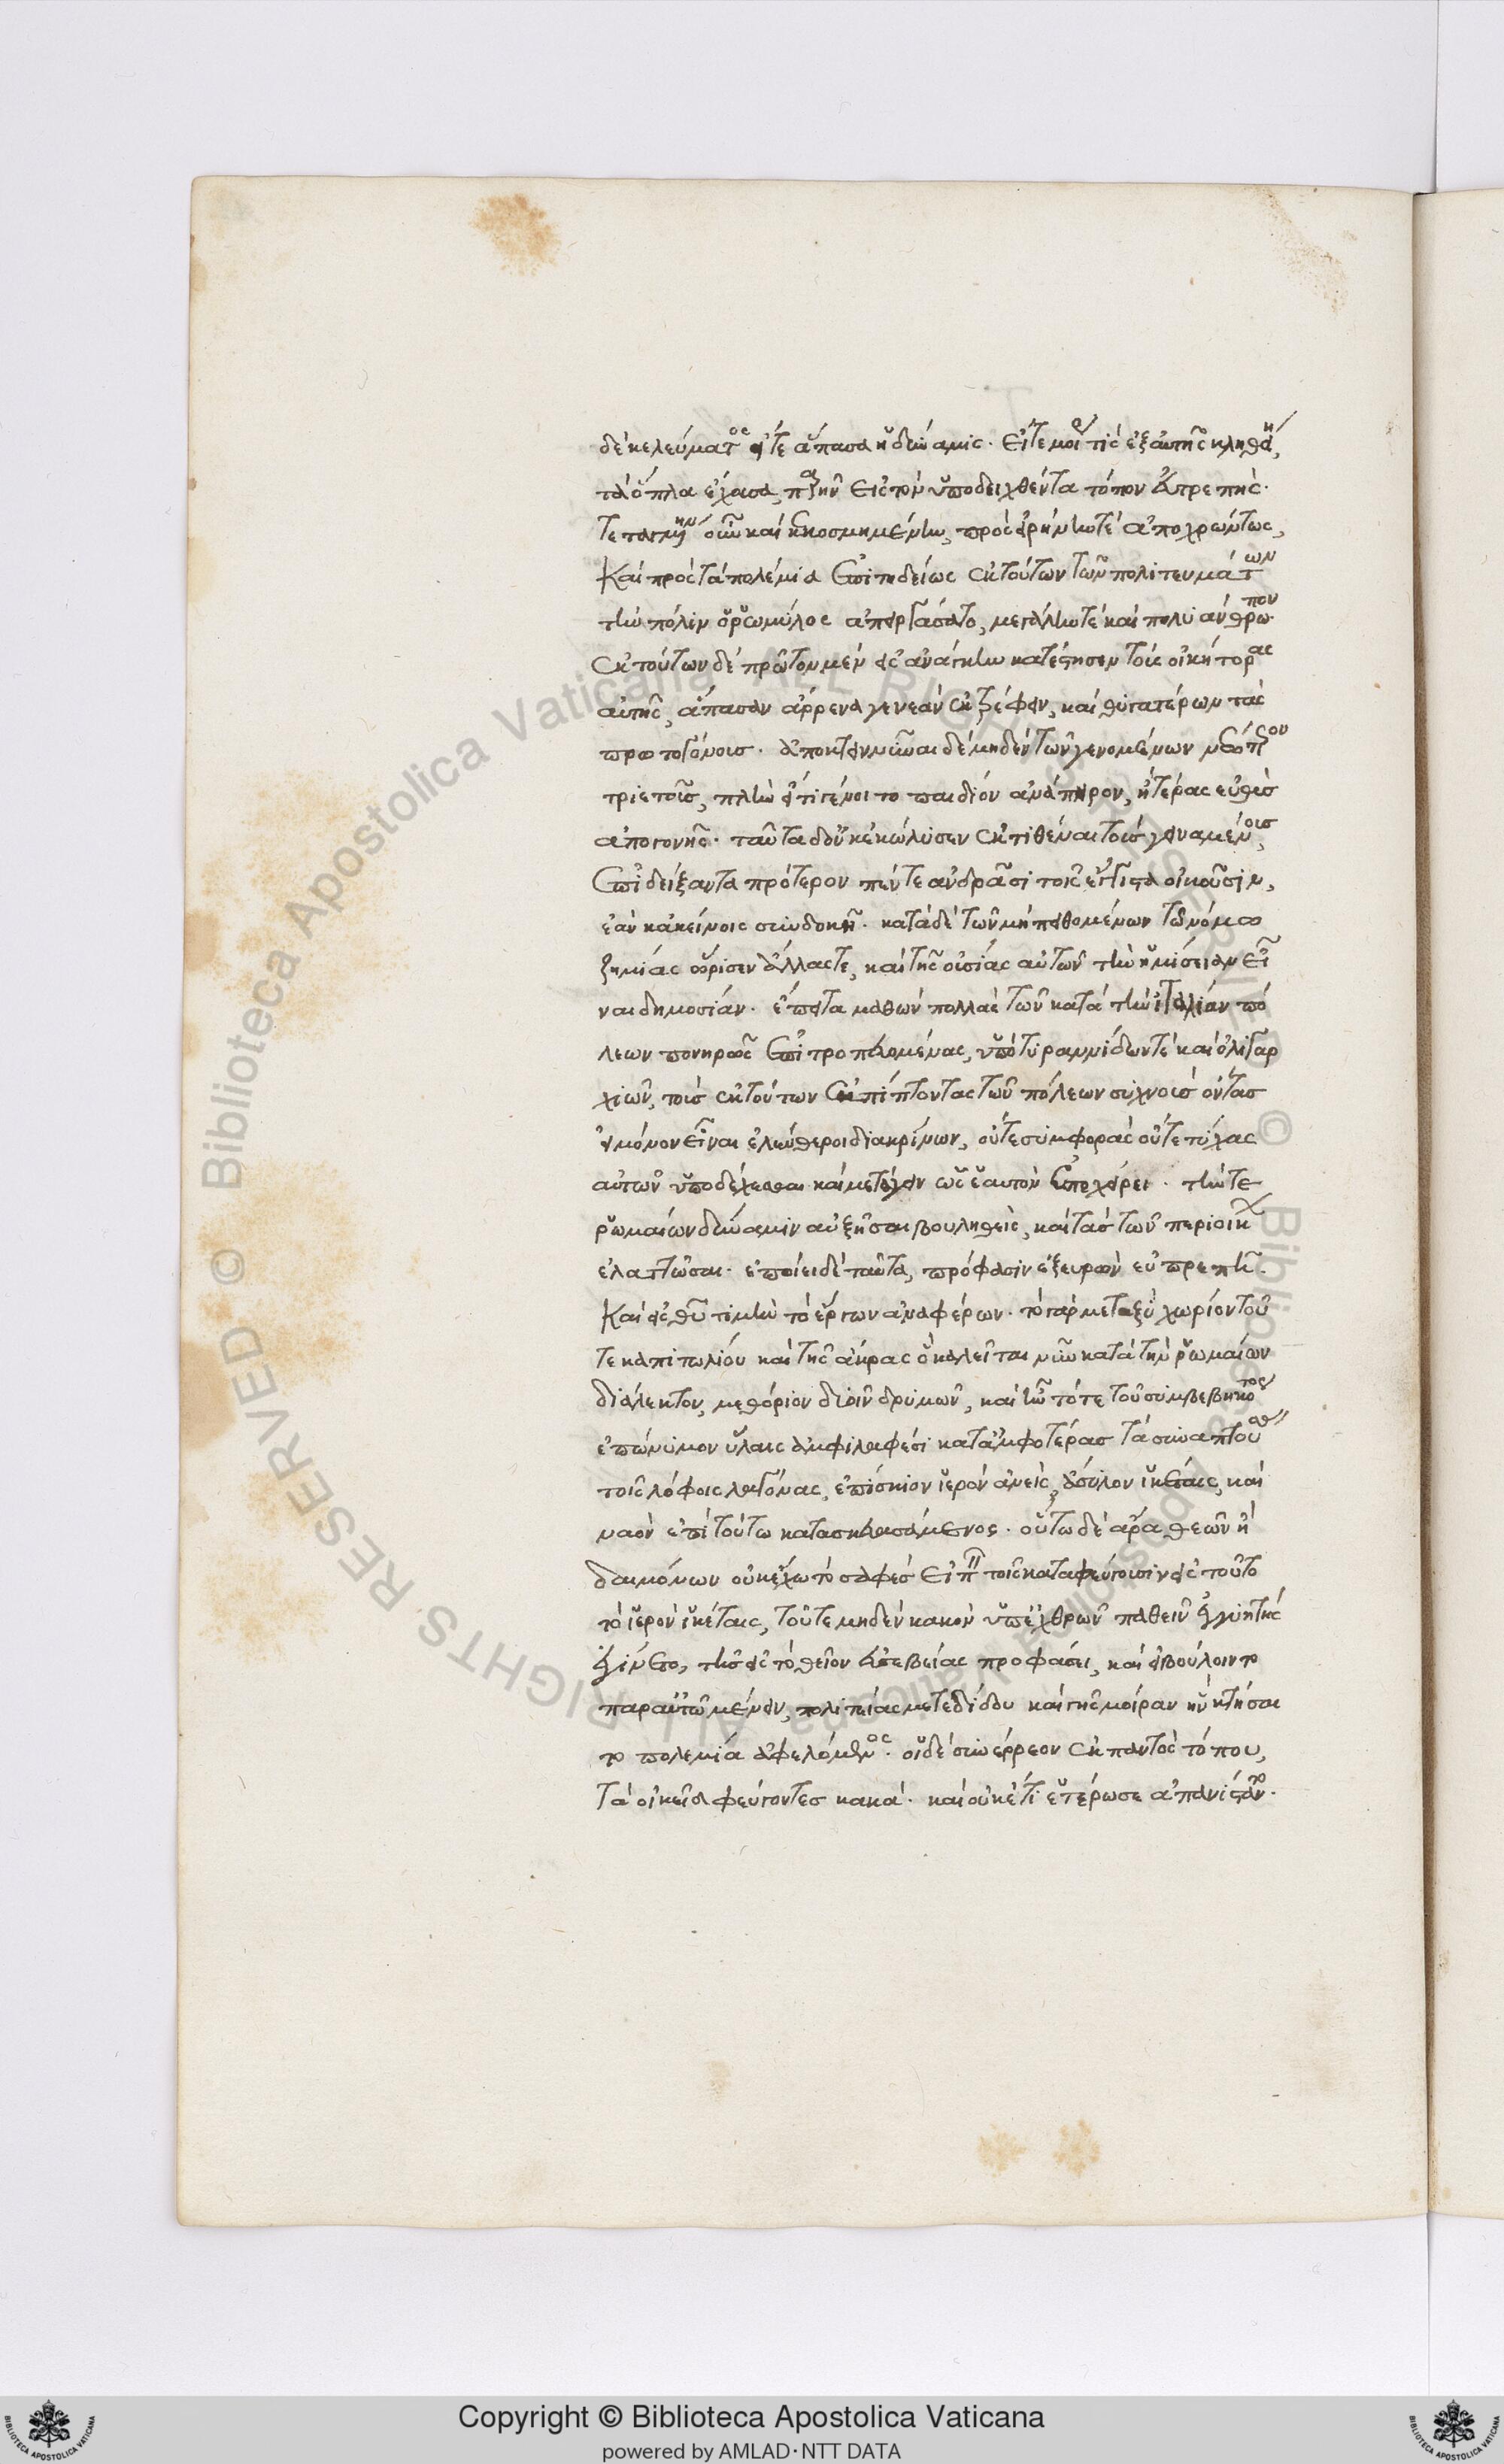 δὲ κελεύματος εἴτε ἅπασα ἡ δύναμις. εἴτε μοῖρά τις ἐξ αὐτῆς κληθείη,
τὰ ὅπλα ἔχουσα παρῆν εἰς τὸν ὑποδειχθέντα τόπον εὐτρεπής.
τεταγμένην οὖν καὶ κεκοσμημένην, πρὸς εἰρήνην τε ἀποχρώντως,
καὶ πρὸς τὰ πολέμια ἐπιτηδείως ἐκ τούτων τῶν πολιτευμάτων
τὴν πόλιν ὁ ῥωμύλος ἀπειργάσατο, μεγάλην τε καὶ πολυάνθρωπον
ἐκ τούτων δὲ πρῶτον μὲν εἰς ἀνάγκην κατέστησεν τοὺς οἰκήτορας
αὐτῆς, ἅπασαν ἄρρενα γενεὰν ἐκτρέφειν, καὶ θυγατέρων τὰς
πρωτογόνους. ἀποκτιννύναι δὲ μηδὲν τῶν γενομένων νεώτερον
τριετοῦς, πλὴν εἴ τι γένοιτο παιδίον ἀνάπηρον, ἢ τέρας εὐθὺς
ἀπογονῆς. ταῦτα δ᾽ οὐκ ἐκώλυσεν ἐκτιθέναι τοὺς γειναμένους,
ἐπιδείξαντα πρότερον πέντε ἀνδράσι τοῖς ἔγγιστα οἰκοῦσιν,
ἐὰν κἀκείνοις συνδοκῇ. κατὰ δὲ τῶν μὴ πειθομένων τῷ νόμῳ
ζημίας ὥρισεν ἄλλας τε, καὶ τῆς οὐσίας αὐτῶν τὴν ἡμίσειαν εἶ
ναι δημοσίαν. ἔπειτα μαθὼν πολλὰς τῶν κατὰ τὴν ἰταλίαν πό
λεων πονηρῶς ἐπιτροπευομένας, ὑπὸ τυραννίδων τὲ καὶ ὀλιγαρ
χιῶν, τοὺς ἐκ τούτων ἐκπίπτοντας τῶν πόλεων συχνοὺς ὄντας
εἰ μόνον εἶναι ἐλεύθεροι διακρίνων, οὔτε συμφορὰς οὔτε τύχας
αὐτῶν ὑποδέχεσθαι καὶ μετάγειν ὡς ἑαυτὸν ἐπεχείρει. τήν τε
ῥωμαίων δύναμιν αὐξῆσαι βουληθεὶς, καὶ τὰς τῶν περιοίκ
ἐλαττῶσαι. ἐποίει δὲ ταῦτα, πρόφασιν ἐξευρὼν εὐπρεπῆ.
καὶ εἰς θεοῦ τιμὴν τὸ ἔργον ἀναφέρων. τὸ γὰρ μεταξὺ χωρίον τοῦ
τε καπιτωλίου καὶ τῆς ἄκρας ὃ καλεῖται νῦν κατὰ τὴν ῥωμαίων
διάλεκτον, μεθόριον δυοῖν δρυμῶν, καὶ ἦν τότε τοῦ συμβεβηκότος
ἐπώνυμον ὕλαις ἀμφιλαφέσι κατ᾽ ἀμφοτέρας τὰς συναπτούσας
τοῖς λόφοις λαγόνας, ἐπίσκιον ἱερὸν ἀνεὶς, ἄσυλον ἱκέταις, καὶ
ναὸν ἐπὶ τούτω κατασκευασάμενος. οὕτω δὲ ἄρα θεῶν ἢ
δαιμόνων οὐκ ἔχω τὸ σαφὲς εἰπεῖν τοῖς καταφεύγουσιν εἰς τοῦτο
τὸ ἱερὸν ἱκέταις, τοῦτε μηδὲν κακὸν ὑπ᾽ ἐχθρῶν παθεῖν ἐγγυητὴς
ἐγίνετο, τῆς εἰς τὸ θεῖον εὐσεβείας προφάσει, καὶ εἰ βούλοιντο
παρ᾽ αὐτῶ μένειν, πολιτείας μετεδίδου καὶ γῆς μοῖραν ἣν κτήσαι
το πολεμία ἀφελόμενος. οἱ δὲ συνέρρεον ἐκ παντὸς τόπου,
τὰ οἰκεῖα φεύγοντες κακά. καὶ οὐκέτι ἑτέρωσε ἀπανίσταντο.
Copyright © Biblioteca Apostolica Vaticana
powered by AMLAD·NTT DATA